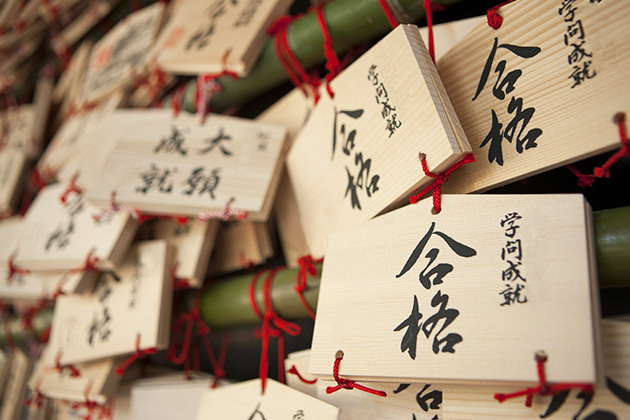 学問成就
合格
学問成就
合格
学問成就
合格
大願
成就
合格